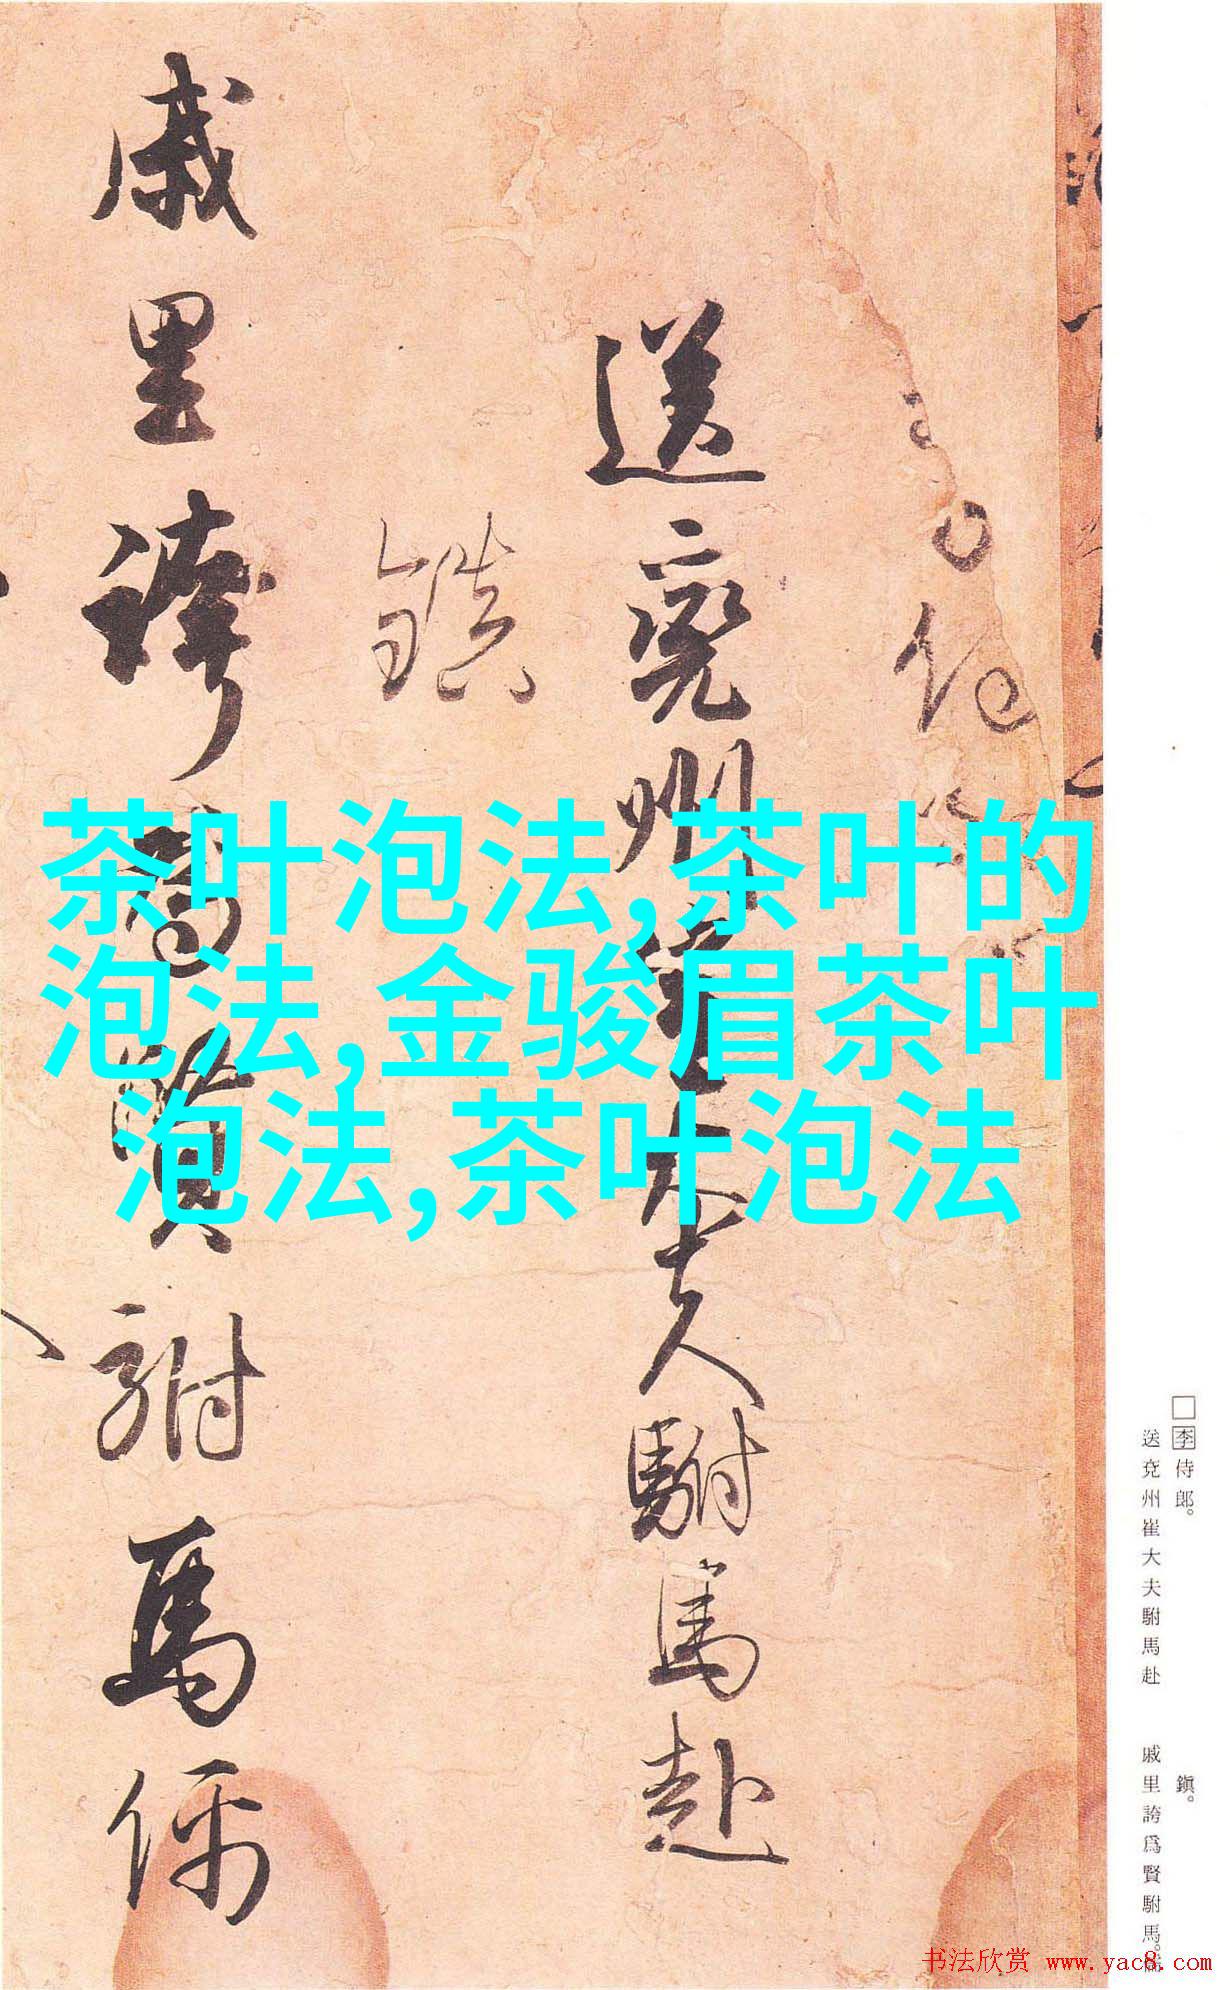 □李侍郎。
送兗州崔大夫駙馬赴
鎮。
戚里誇為賢駙馬
送兗州崔大夫駙馬赴
鎮
戚里誇為賢駙馬儒
茶叶泡法,茶叶的
泡法,金骏眉茶叶
泡法,茶叶泡法
书法欣赏 www.yac8.com